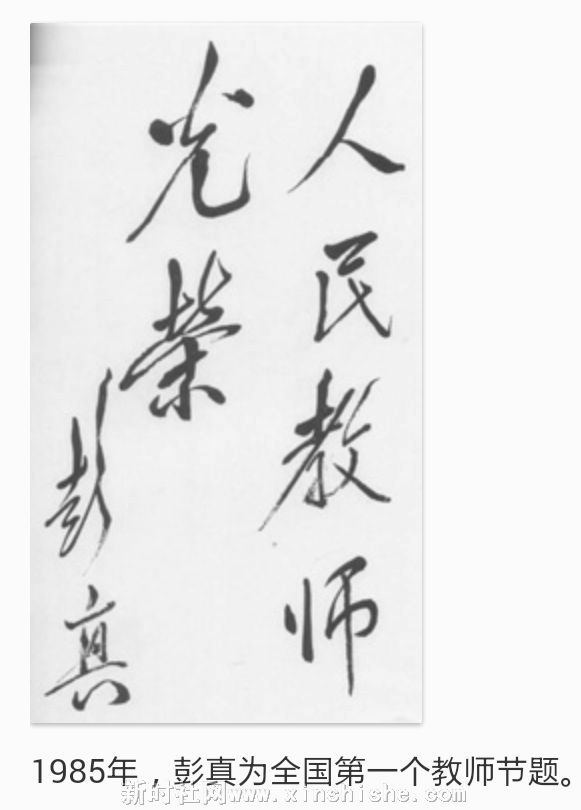 人民教师
光荣
彭真
1985年，彭真为全国第一个教师节题。
新时社网www.xinshishe.com